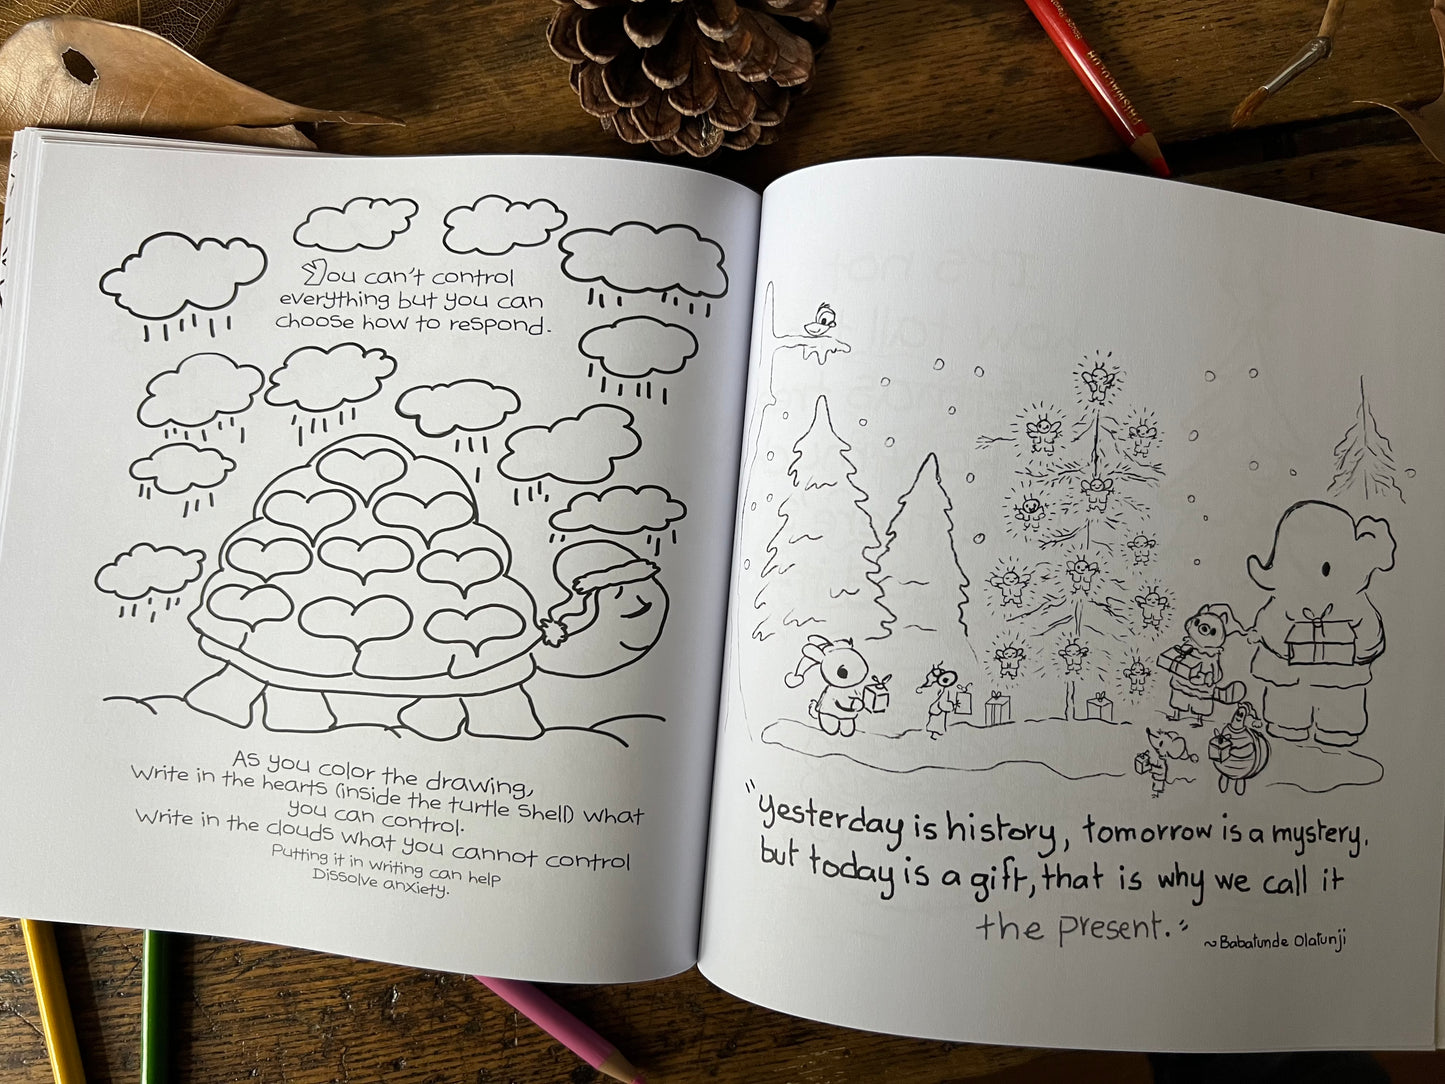 You can't control
everything but you can
choose how to respond.
As you color the drawing,
Write in the hearts (inside the turtle shell) what
you can control.
Write in the clouds what you cannot control
Putting it in writing can help
Dissolve anxiety.
"Yesterday is history, tomorrow is a mystery,
but today is a gift, that is why we call it
the present."
~Babatunde Olatunji
PRISMACOLOR